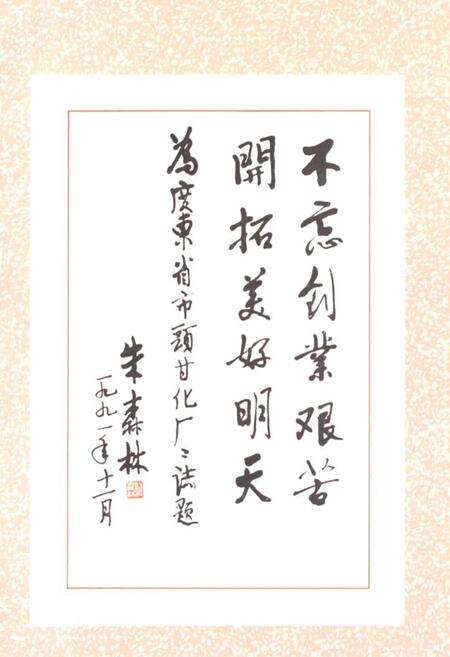 不忘创業艰苦
開拓美好明天
為廣東省市頭甘化厂厂誌题
朱森林
一九九一年十一月